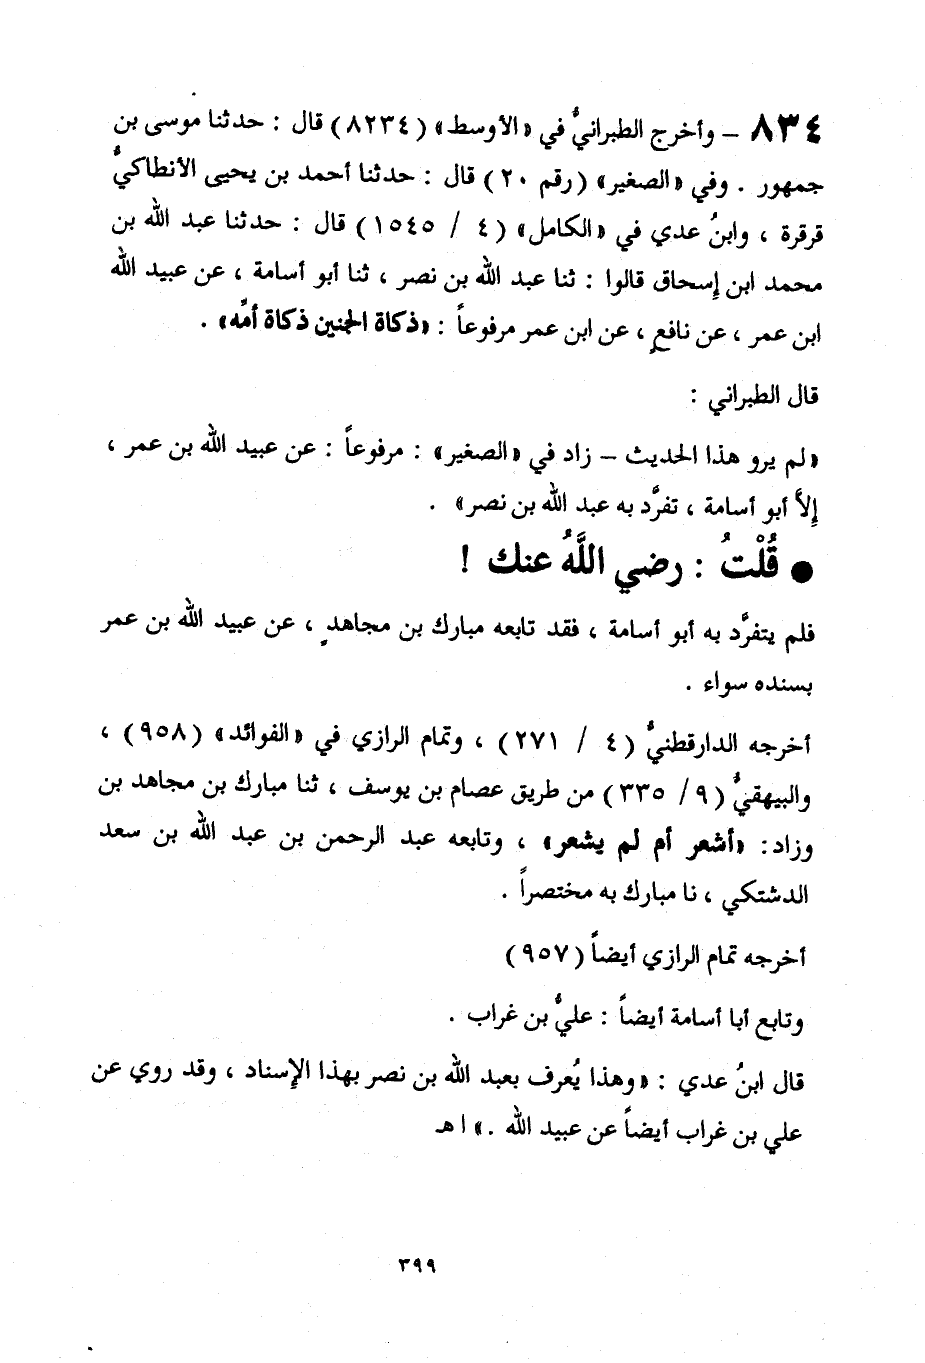 ٨٣٤ – وأخرج الطبرانيُّ في «الأوسط» (٨٢٣٤) قال : حدثنا موسى بن
جمهور . وفي «الصغير» (رقم ٢٠) قال : حدثنا أحمد بن يحيى الأنطاكيُّ
قرقرة ، وابنُ عدي في «الكامل» (٤ / ١٥٤٥) قال : حدثنا عبد الله بن
محمد ابن إسحاق قالوا : ثنا عبد الله بن نصر ، ثنا أبو أسامة ، عن عبيد الله
ابن عمر ، عن نافعٍ ، عن ابن عمر مرفوعاً : «ذكاة الجنين ذكاة أمِّه» .
قال الطبراني :
«لم يرو هذا الحديث – زاد في «الصغير» : مرفوعاً : عن عبيد الله بن عمر ،
إلاَّ أبو أسامة ، تفرَّد به عبد الله بن نصر» .
● قُلْتُ : رضي اللَّهُ عنك !
فلم يتفرَّد به أبو أسامة ، فقد تابعه مبارك بن مجاهدٍ ، عن عبيد الله بن عمر
بسنده سواء .
أخرجه الدارقطنيُّ (٤ / ٢٧١) ، وتمام الرازي في «الفوائد» (٩٥٨) ،
والبيهقيُّ (٩/ ٣٣٥) من طريق عصام بن يوسف ، ثنا مبارك بن مجاهد بن
وزاد: «أشعر أم لم يشعر» ، وتابعه عبد الرحمن بن عبد الله بن سعد
الدشتكي ، نا مبارك به مختصراً .
أخرجه تمام الرازي أيضاً (٩٥٧)
وتابع أبا أسامة أيضاً : عليُّ بن غراب .
قال ابنُ عدي : «وهذا يُعرف بعبد الله بن نصر بهذا الإسناد ، وقد روي عن
علي بن غراب أيضاً عن عبيد الله .» ا هـ
٣٩٩